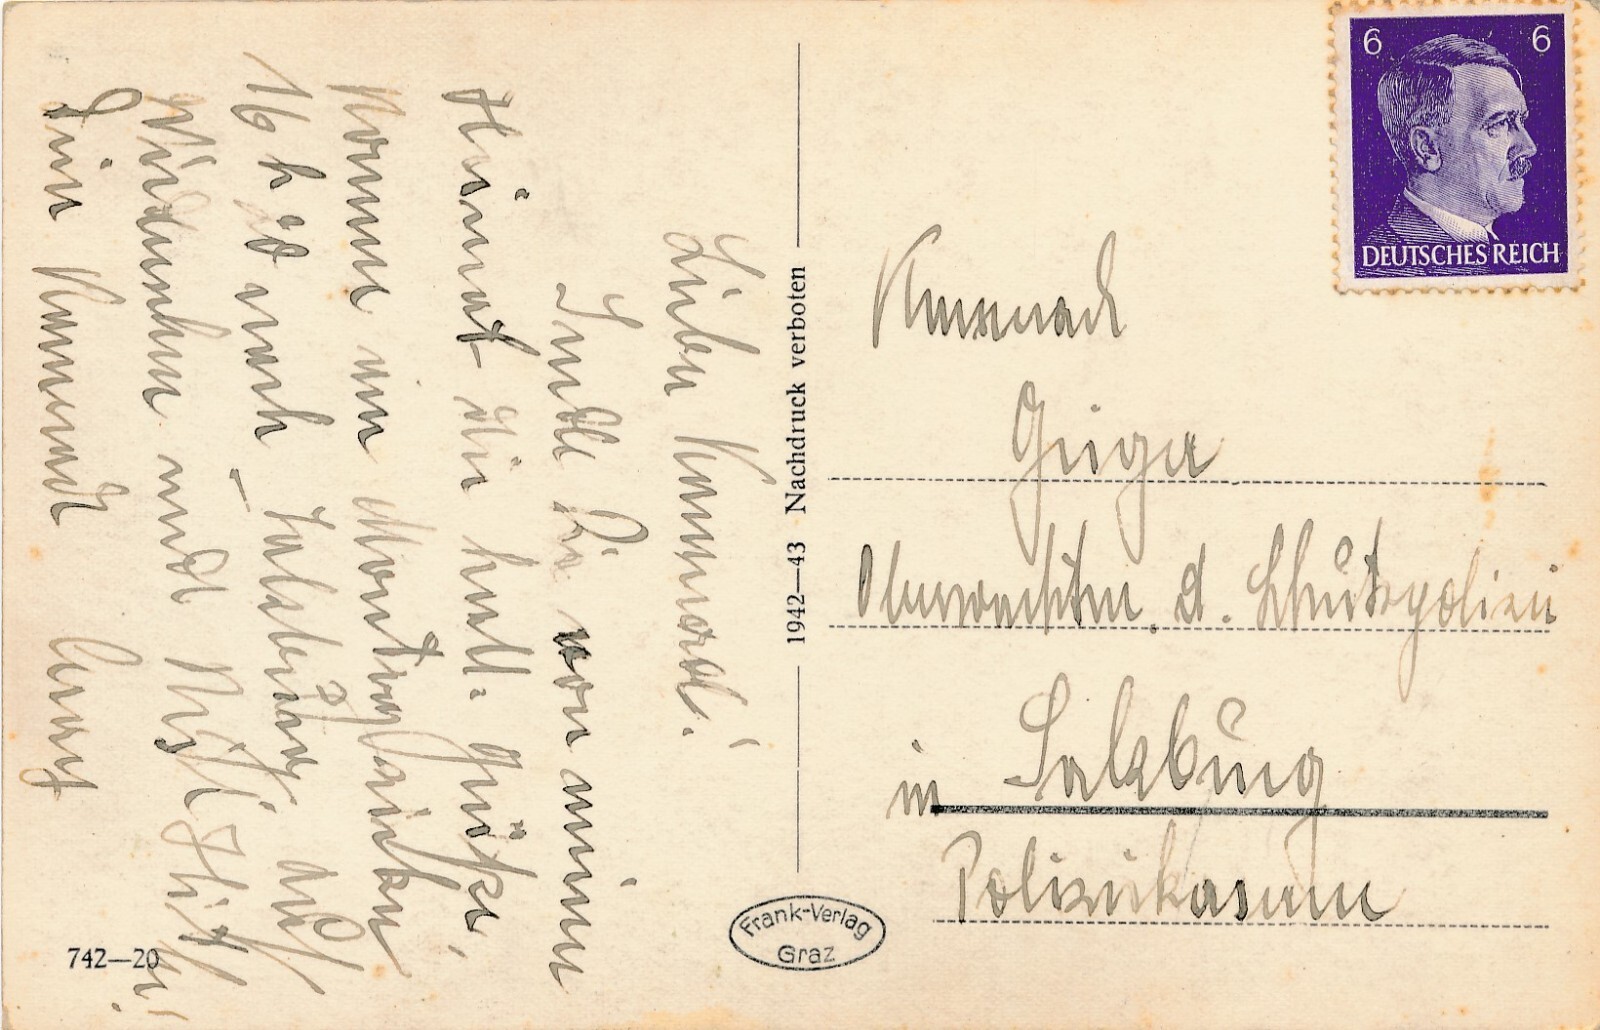 Lieber Kamerad!
Sende Dir von meiner
Heimat die herzl. Grüße,
komme am Montag zirka
16 h 28 nach Salzburg auf
Wiedersehen und
Dein Kamerad
742—20
1942—43 Nachdruck verboten
Frank-Verlag
Graz
6 6
DEUTSCHES REICH
Kamerad
Geiger
Oberwachtm. d. Schutzpolizei
in Salzburg
Polizeikaserne